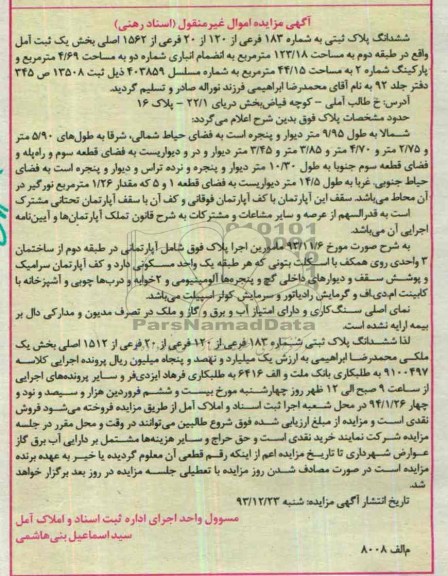 آگهی مزایده اموال غیرمنقول (اسناد رهنی)
ششدانگ پلاک ثبتی به شماره ۱۸۳ فرعی از ۱۲۰ از ۲۰ فرعی از ۱۵۶۲ اصلی بخش یک ثبت آمل
واقع در طبقه دوم به مساحت ۱۲۳/۱۸ مترمربع به انضمام انباری شماره دو به مساحت ۴/۶۹ مترمربع و
پارکینگ شماره ۲ به مساحت ۴۴/۱۵ مترمربع به شماره مسلسل ۴۰۳۸۵۹ ذیل ثبت ۱۳۵۰۸ ص ۳۴۵
دفتر جلد ۹۲ به نام آقای محمدرضا ابراهیمی فرزند نوراله صادر و تسلیم گردید.
آدرس: خ طالب آملی - کوچه فیاض‌بخش دریای ۲۲/۱ - پلاک ۱۶
حدود مشخصات پلاک فوق بدین شرح اعلام می‌گردد:
شمالا به طول ۹/۹۵ متر دیوار و پنجره است به فضای حیاط شمالی، شرقا به طول‌های ۵/۹۰ متر
و ۲/۷۵ متر و ۴/۷۰ متر و ۳/۸۵ متر و ۳/۴۵ متر دیوار و در و دیواریست به فضای قطعه سوم و راه‌پله و
فضای قطعه سوم جنوبا به طول ۱۰/۳۰ متر دیوار و پنجره و نرده تراس و دیوار و پنجره است به فضای
حیاط جنوبی، غربا به طول ۱۴/۵ متر دیواریست به فضای قطعه ۱ و ۵ که مقدار ۱/۲۶ مترمربع نورگیر در
آن محاط می‌باشد. سقف این آپارتمان با کف آپارتمان فوقانی و کف آن با سقف آپارتمان تحتانی مشترک
است به قدرالسهم از عرصه و سایر مشاعات و مشترکات به شرح قانون تملک آپارتمان‌ها و آیین‌نامه
اجرایی آن می‌باشد.
به شرح صورت مورخ ۹۳/۱۱/۶ مامورین اجرا پلاک فوق شامل آپارتمانی در طبقه دوم از ساختمان
۳ واحدی روی همکف با اسکلت بتونی که هر طبقه یک واحد مسکونی دارد و کف آپارتمان سرامیک
و پوشش سقف و دیوارهای داخلی گچ و پنجره‌ها آلومینیومی و ۲خوابه و درب‌ها چوبی و آشپزخانه با
کابینت ام‌دی‌اف و گرمایش رادیاتور و سرمایش کولر اسپیلت می‌باشد.
نمای اصلی سنگ‌کاری و دارای امتیاز آب و برق و گاز و ملک در تصرف مدیون و مدارکی دال بر
بیمه ارایه نشده است.
لذا ششدانگ پلاک ثبتی شماره ۱۸۳ فرعی از ۱۲۰ فرعی از ۲۰ فرعی از ۱۵۱۲ اصلی بخش یک
ملکی محمدرضا ابراهیمی به ارزش یک میلیارد و نهصد و پنجاه میلیون ریال پرونده اجرایی کلاسه
۹۱۰۰۴۹۷ به طلبکاری بانک ملت و الف ۶۴۱۶ به طلبکاری فرهاد ایزدی‌فر و سایر پرونده‌های اجرایی
از ساعت ۹ صبح الی ۱۲ ظهر روز چهارشنبه مورخ بیست و ششم فروردین هزار و سیصد و نود و
چهار ۹۴/۱/۲۶ در محل شعبه اجرا ثبت اسناد و املاک آمل از طریق مزایده فروخته می‌شود فروش
نقدی است و مزایده از مبلغ ارزیابی شده فوق شروع طالبین می‌توانند در وقت و محل مقرر در جلسه
مزایده شرکت نمایند خرید نقدی است و حق حراج و سایر هزینه‌ها مشتمل بر دارایی آب برق گاز
عوارض شهرداری تا تاریخ مزایده اعم از اینکه رقم قطعی آن معلوم گردیده یا خیر به عهده برنده
مزایده است در صورت مصادف شدن روز مزایده با تعطیلی جلسه مزایده در روز بعد برگزار خواهد
شد.
تاریخ انتشار آگهی مزایده: شنبه ۹۳/۱۲/۲۳
مسوول واحد اجرای اداره ثبت اسناد و املاک آمل
سید اسماعیل بنی‌هاشمی
م‌الف ۸۰۰۸
ParsNamadData